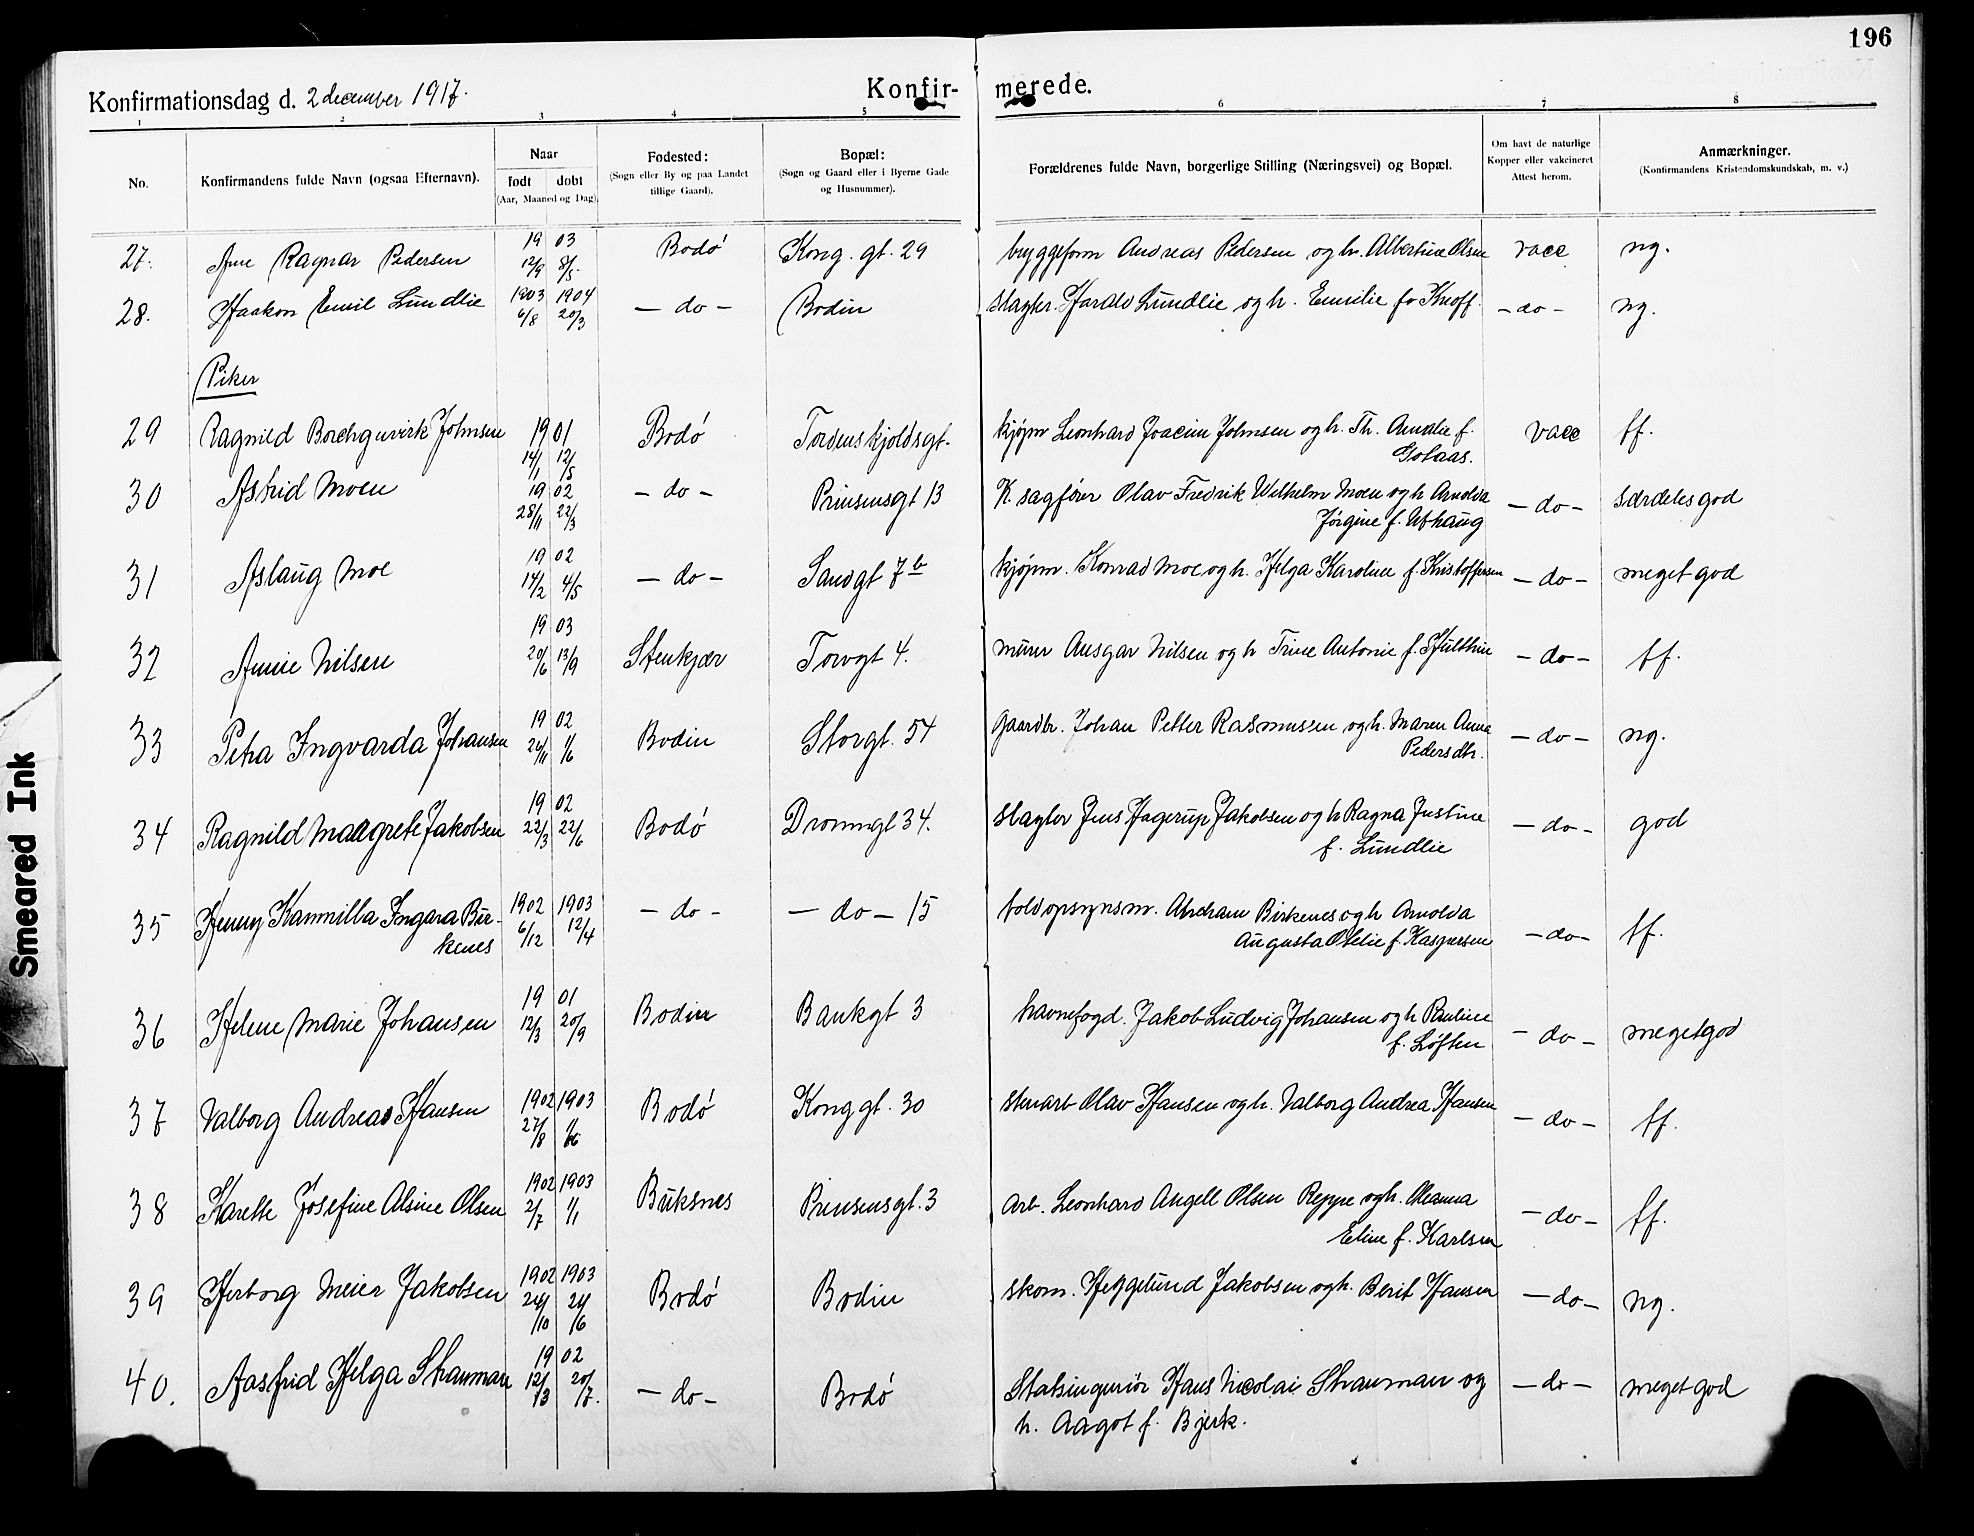 196
Konfirmationsdag d. 2 december 1917. Konfir- merede.
1 2 3 4 5 6 7 8
No. Konfirmandens fulde Navn (ogsaa Efternavn). Naar født døbt (Aar, Maaned og Dag). Fødested: (Sogn eller By og paa Landet tillige Gaard). Bopæl: (Sogn og Gaard eller i Byerne Gade og Husnummer). Forældrenes fulde Navn, borgerlige Stilling (Næringsvei) og Bopæl. Om havt de naturlige Kopper eller vakcineret Attest herom. Anmærkninger. (Konfirmandens Kristendomskundskab, m. v.)
27. Arne Ragnar Pedersen 19 03 12/9 8/5 Bodø Kong. gt. 29 bryggeform Andreas Pedersen og h. Albertine Olsen vacc ng.
28. Haakon Emil Lundlie 1903 1904 6/8 20/3 – do – Bodin slagter. Harald Lundlie og h. Emilie fø Knoff – do – ng.
Piker
29 Ragnild Borchgrevink Johnsen 19 01 14/1 12/5 Bodø Tordenskjoldsgt. kjøpm Leonhard Joacim Johnsen og h. Th. Amalie f. Golaas. vacc tf.
30 Astrid Moen 19 02 28/11 22/3 – do – Prinsensgt 13 K. sagfører Olav Fredrik Wilhelm Moen og h Arnolda
Jørgine f. Uthaug – do – særdeles god
31 Aslaug Moe 19 02 14/2 4/5 – do – Sandgt 7b kjøpm. Konrad Moe og h. Helga Karoline f. Kristoffersen – do – meget god
32 Annie Nilsen 19 03 20/6 13/9 Stenkjær Torvgt 4. murer Ansgar Nilsen og h Trine Antonie f. Hulthin – do – tf.
33 Petra Ingvarda Johansen 19 02 26/11 1/6 Bodin Storgt. 54 Gaardbr. Johan Petter Rasmussen og h. Maren Anna
Pedersdtr. – do – ng.
34 Ragnild Margrete Jakobsen 19 02 22/3 22/6 Bodø Dronningt 34. slagter Jens Hagerup Jakobsen og h Ragna Justine
f. Lundlie – do – god
35 Henny Kammilla Ingara Bir- 1902 1903 6/12 12/4 – do – – do – 15 toldopsynsm. Abraham Birkenes og h Arnolda
kenes Augusta Otelie f. Kaspersen – do – tf.
36 Helene Marie Johansen 19 01 12/3 20/9 Bodin Bankgt 3 havnefogd. Jakob Ludvig Johansen og h Pauline
f. Løften – do – meget god
37 Valborg Andreas Hansen 1902 1903 27/8 1/6 Bodø Konggt. 30 stuart Olav Hansen og h. Valborg Andrea Hansen – do – tf.
38 Karette Josefine Alsine Olsen 1902 1903 2/7 1/1 Buksnes Prinsensgt. 3 arb. Leonhard Angell Olsen Reppe og h. Oleanna
Eline f. Karlsen – do – tf.
39 Herborg Meier Jakobsen 1902 1903 24/10 21/6 Bodø Bodin skom. Heggelund Jakobsen og h. Berit Hansen – do – ng.
40. Aasfrid Helga Skauman 19 02 12/3 20/7. – do – Bodø Statsingeniør Hans Nicolai Skauman og
h. Aagot f. Bjerk. – do – meget god
Smeared Ink